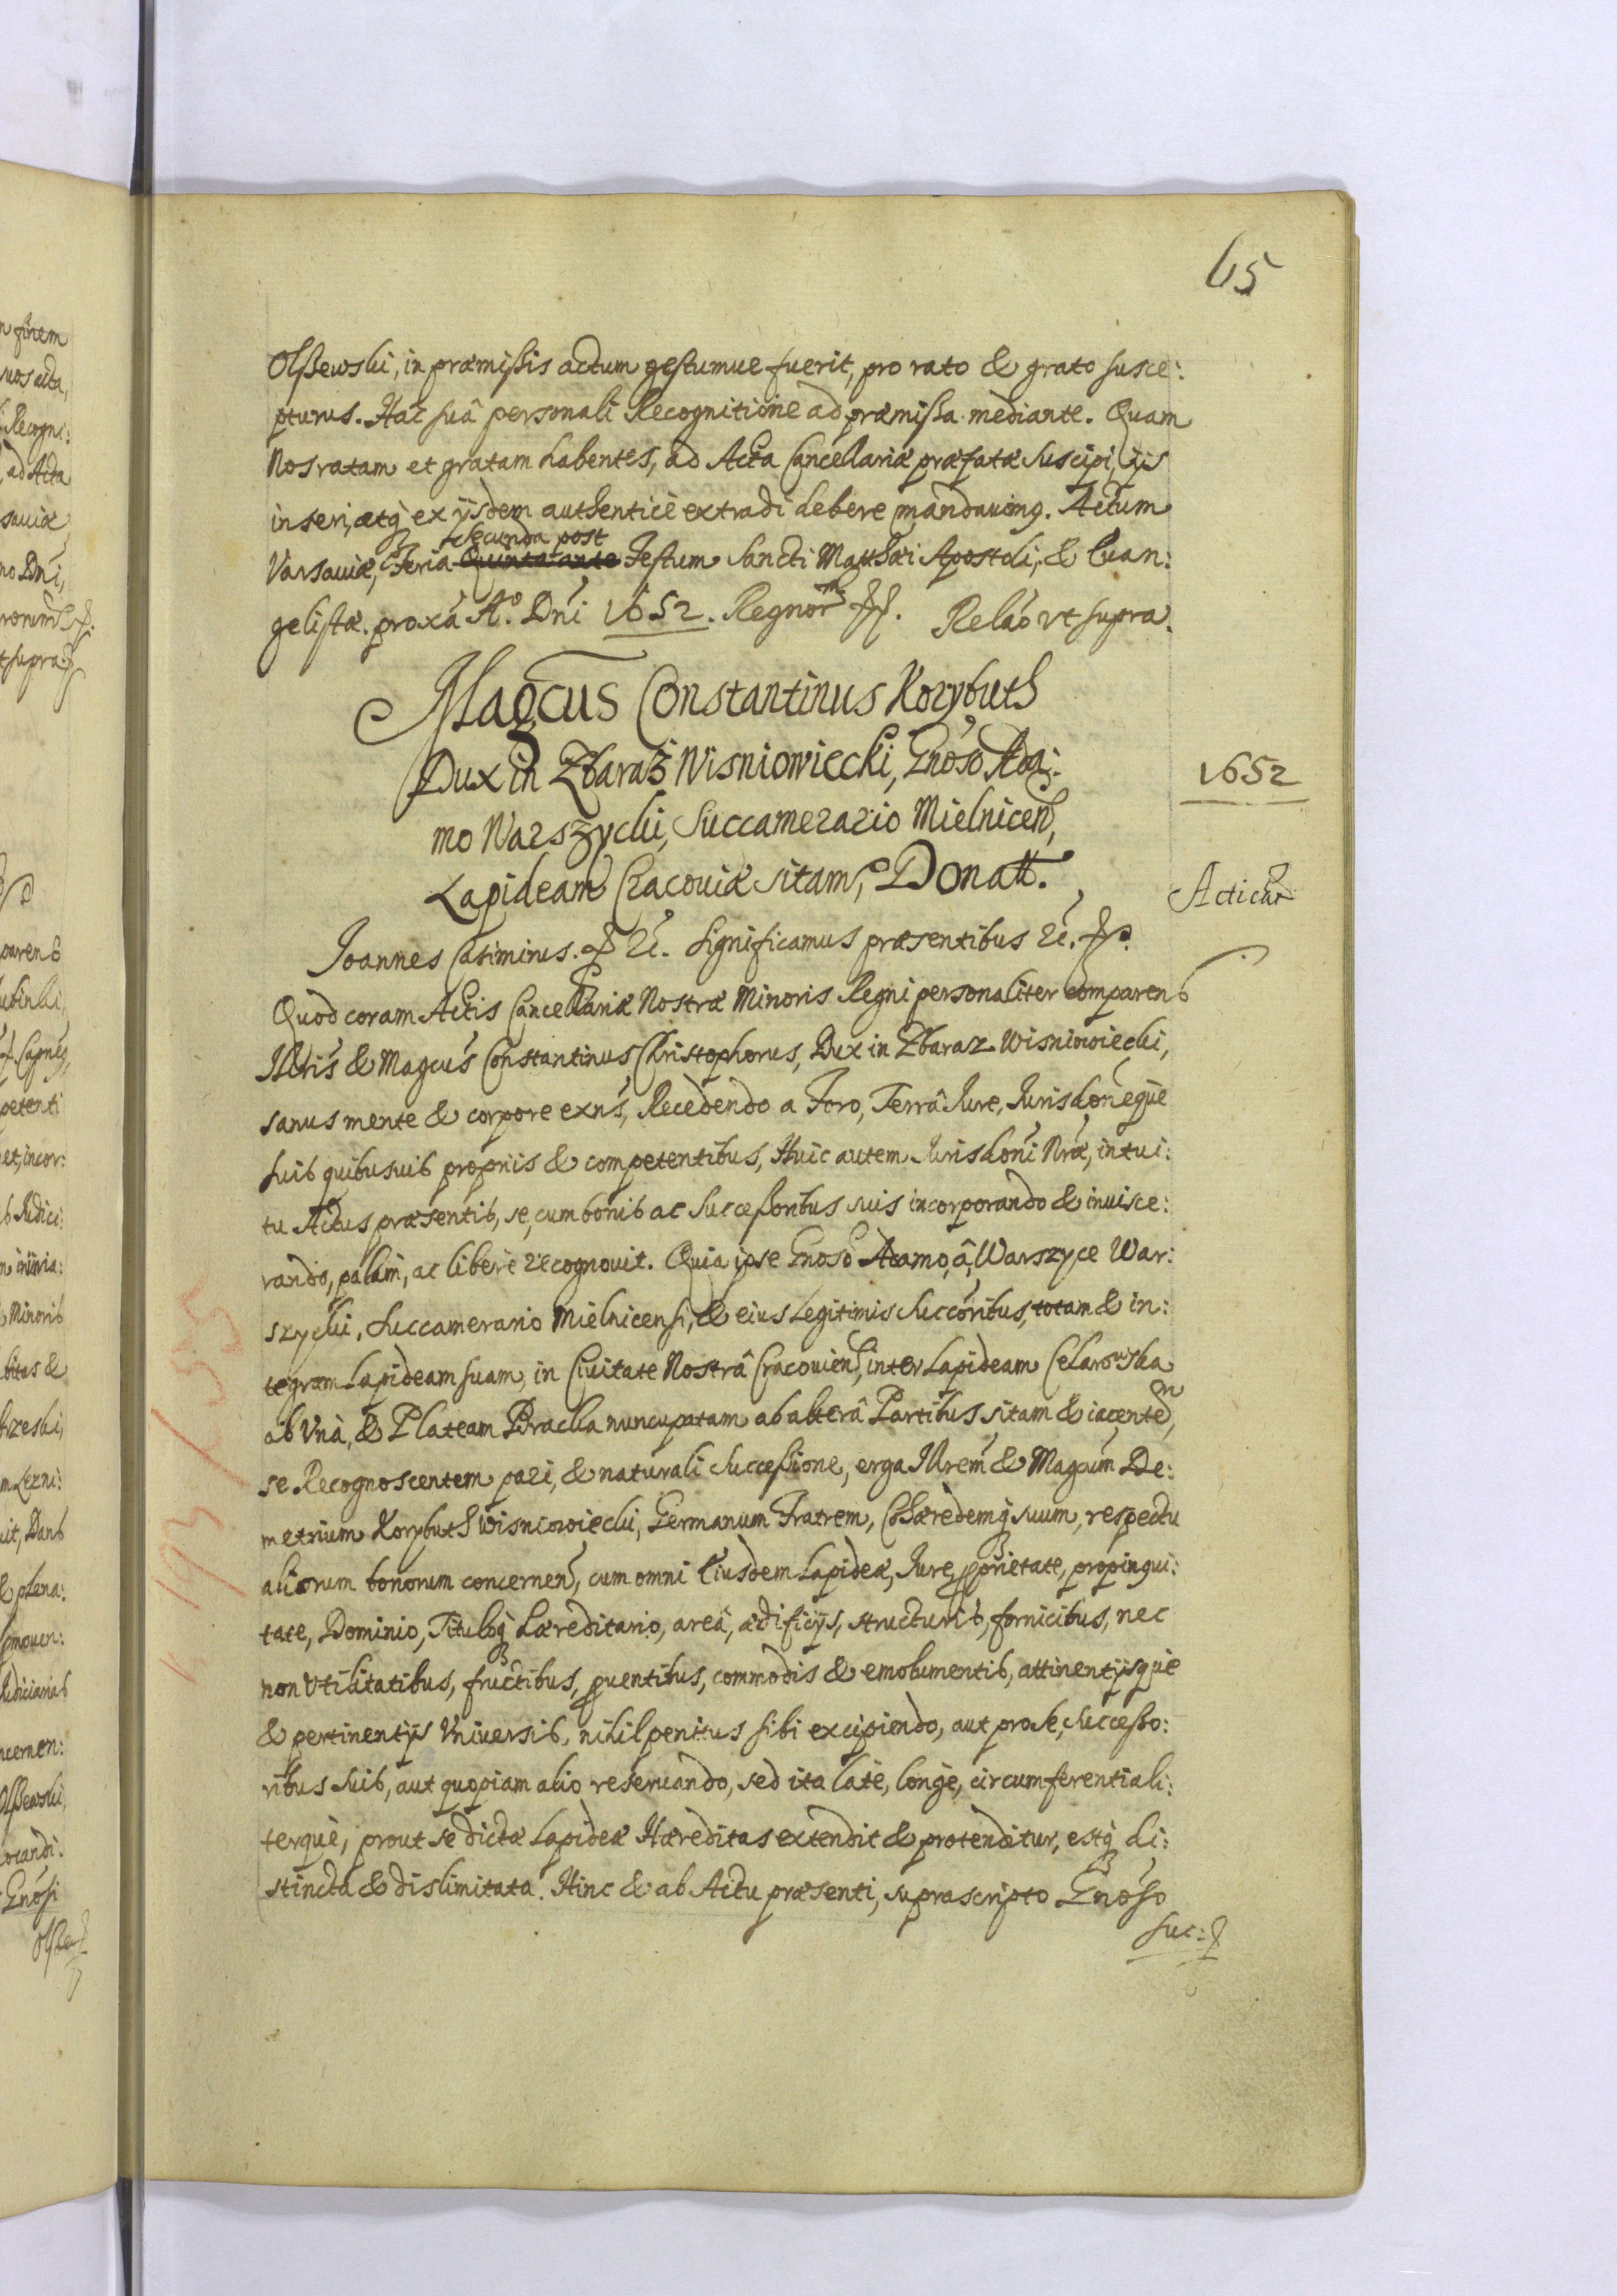 65
Olßewski, in præmißis actum gestumue fuerit, pro rato & grato susce:
pturus. Hac suâ personali Recognitione ad præmissa mediante. Quam
Nos ratam et gratam habentes, ad Acta Cancellariæ præfatæ suscipi, ijs
inseri, atq́ ex ijsdem authenticè extradi debere mandauimg. Actum
Secunda post
Varsauiæ, Feria Quinta ante Festum Sancti Matthæi Apostoli, & Euan:
gelistæ proxá A.º Dni 1652. Regnorm
Reláo vt supra.
Magcus Constantinus Korybuth
Dux in Zbaraż Wisniowiecki, Gnoso Ada:
mo Warszycki, Succamerario Mielnicen,
Lapideam Cracouiæ sitam, Donatt.
1652
Acticat
Joannes Casimirus. Significamus præsentibus
Quod coram Actis Cancellariæ Nostræ Minoris Regni personaliter comparens
Illris & Magcus Constantinus Christophorus, Dux in Zbaraz Wisniowiecki,
sanus mente & corpore exns, Recedendo a Foro, Terrâ Jure, Jurisdonequè
suis quibusuis proprijs & competentibus, Huic autem Jurisdoni Nræ, intui:
tu Actus præsentis, se, cum bonis ac Successoribus suis incorporando & inuisce:
rando, palàm, ac liberè recognouit. Quia ipse Gnoso Adamo, â Warszyce War:
szycki, Succamerario Mielnicensi, & eius Legitimis Succoribus, totam & in:
tegram Lapideam suam, in Ciuitate Nostrâ Cracouien, inter Lapideam Celarowska
ab Vnâ, & Plateam Bracka nuncupatam ab alterâ Partibus sitam & iacentem,
se Recognoscentem pari, & naturali Successione, erga Illrem & Magcum De:
metrium Korybuth Wisniowiecki, Germanum Fratrem, Cohæredemq́ suum, respectu
aliorum bonorum concernen, cum omni Eiusdem Lapideæ, Jure, pprietate, propinqui:
tate, Dominio, Tituloq́ hæreditario, areâ, ædificijs, structuris, fornicibus, nec
non Vtilitatibus, fructibus, puentibus, commodis & emolumentis, attinentijsquè
& pertinentijs Vniuersis, nihil penitus sibi excipiendo, aut pro se, Successo:
ribus suis, aut quopiam alio reseruando, sed ita latè, longè, circumferentiali:
terquè, prout se dictæ Lapideæ Hæreditas extendit & protenditur, estq́ di:
stincta & dislimitata. Hinc & ab Actu præsenti, suprascripto Gnoso
suc: